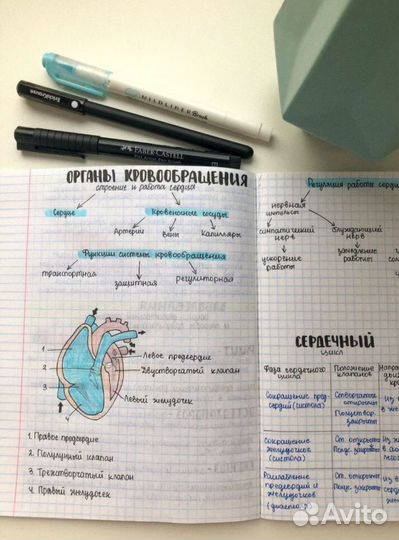 MILDLINER Brush
ErichKrause
FABER-CASTELL
ОРГАНЫ КРОВООБРАЩЕНИЯ
строение и работа сердца
Сердце
Кровеносные сосуды
Артерии
Вены
Капилляры
Функции системы кровообращения
транспортная
защитная
регуляторная
1
2
3
4
Левое предсердие
Двустворчатый клапан
Левый желудочек
1. Правое предсердие
2. Полулунный клапан
3. Трехстворчатый клапан
4. Правый желудочек
Регуляция работы сердц
нервная
импульсы
симпатический
нерв
блуждающий
нерв
ускорение
работы
замедление
работы
СЕРДЕЧНЫЙ
цикл
Фаза сердечного
цикла
Положение
клапанов
Направ
движ
кро
Сокращение пред-
сердий (систола)
Створчатые
открыты
Полулунные
закрыты
Сокращение
желудочков
(систола)
Расслабление
предсердий и
желудочков
Ст. открыты
Avito